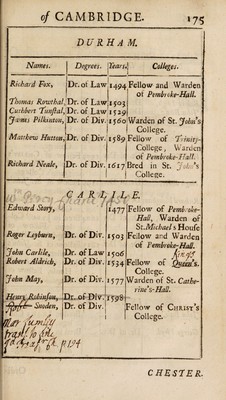 of CAMBRIDGE. 175
DURHAM.
Names. Degrees. Years. Colleges.
Richard Fox, Dr. of Law 1494 Fellow and Warden
of Pembroke-Hall.
Thomas Rowthal, Dr. of Law 1503
Cuthbert Tunstal, Dr. of Law 1529
James Pilkinton, Dr. of Div. 1560 Warden of St. John's
College.
Matthew Hutton, Dr. of Div. 1589 Fellow of Trinity-
College, Warden
of Pembroke-Hall.
Richard Neale, Dr. of Div. 1617 Bred in St. John's
College.
CARLILE.
Edward Story, 1477 Fellow of Pembroke-
Hall, Warden of
St. Michaels House
Roger Leyburn, Dr. of Div. 1503 Fellow and Warden
of Pembroke-Hall.
John Carlile, Dr. of Law 1506
King's
Robert Aldrich, Dr. of Div. 1534 Fellow of Queen's.
College.
John May, Dr. of Div. 1577 Warden of St. Cathe-
rine's-Hall.
Henry Robinson, Dr. of Div. 1598
Snoden, Dr. of Div. Fellow of CHRIST'S
College.
CHESTER.